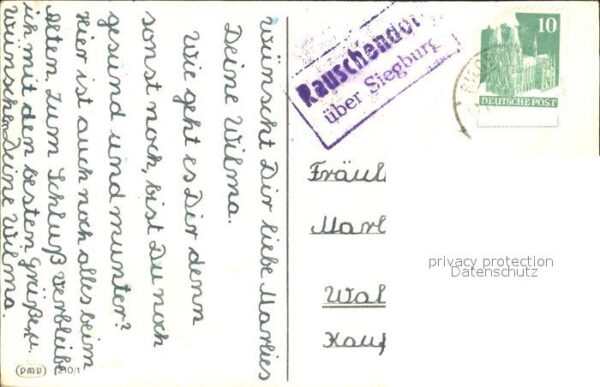 wünscht Dir liebe Marlies
Deine Wilma.
Wie geht es Dir denn
sonst noch, bist Du noch
gesund und munter?
Hier ist auch noch alles beim
Alten. Zum Schluß verbleibe
ich mit den besten Grüßen u.
Wünschen Deine Wilma.
Rauschendor
über Siegburg
10
DEUTSCHE POST
Fräul
Marl
Wal
Kauf
privacy protection
Datenschutz
210/1